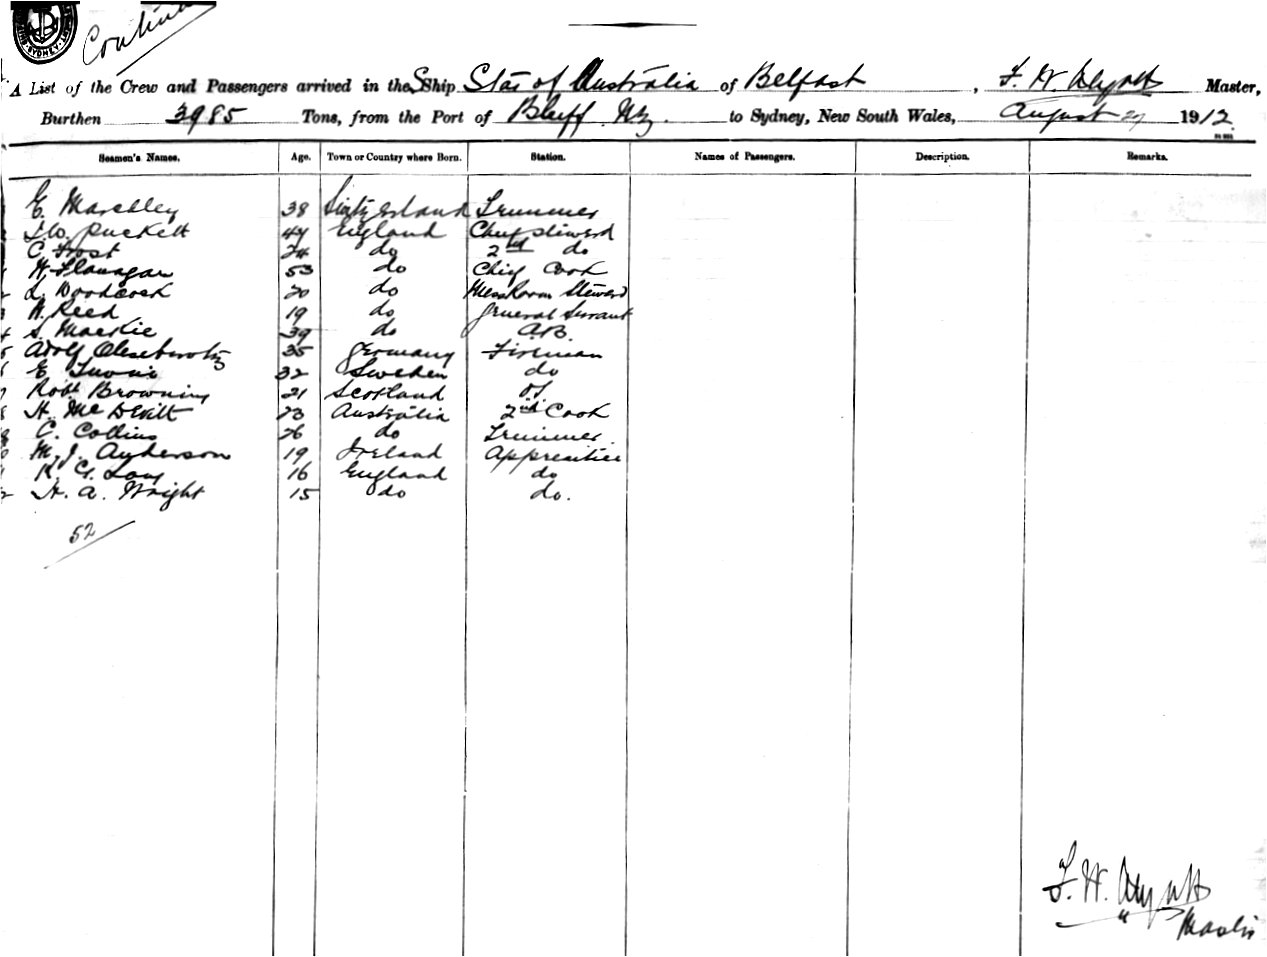 SYDNEY
A List of the Crew and Passengers arrived in the SShip Star of Australia of Belfast, F. W. Wyatt Master,
Burthen 3985 Tons, from the Port of Bluff NZ. to Sydney, New South Wales, August 29 1912
Seamen's Names. Age. Town or Country where Born. Station. Names of Passengers. Description. Remarks.
E. 38 Trimmer
Puckett 44 England Chief steward
C Frost 24 do 2nd do
W. Flanagan 53 do Chief Cook
L. Woodcock 20 do MessRoom Steward
W. Reed 19 do General Servant
S. Mackie 39 do A.B.
Adolf 35 Germany Fireman
E 32 Sweden do
Robt Browning 21 Scotland
H. McDevitt 23 Australia 2nd Cook
C. Collins 26 do Trimmer.
M. J. 19 Ireland Apprentice
K. G. Long 16 England do
H. A. Wright 15 do do.
52
F. W. Wyatt
Master